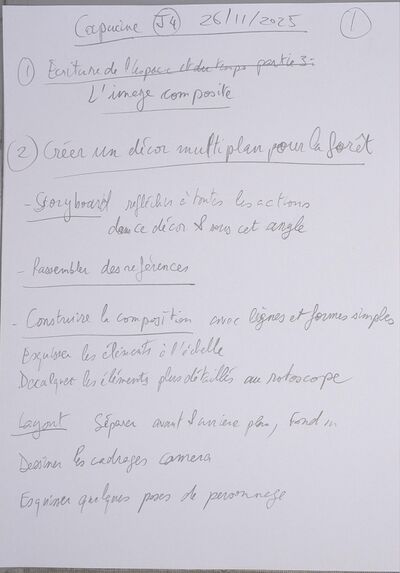 Capucine J4 26/11/2025 1
1 Ecriture de l'espace et du temps partie 3:
L'image composite
2 Créer un décor multiplan pour la forêt
- Storyboard réfléchir à toutes les actions
dans ce décor & sous cet angle
- Rassembler des références
- Construire la composition avec lignes et formes simples
Esquisser les éléments à l'échelle
Décalquer les éléments plus détaillés au rotoscope
Layout Séparer avant & arrière plan, Fond
Dessiner les cadrages camera
Esquisser quelques poses de personnage